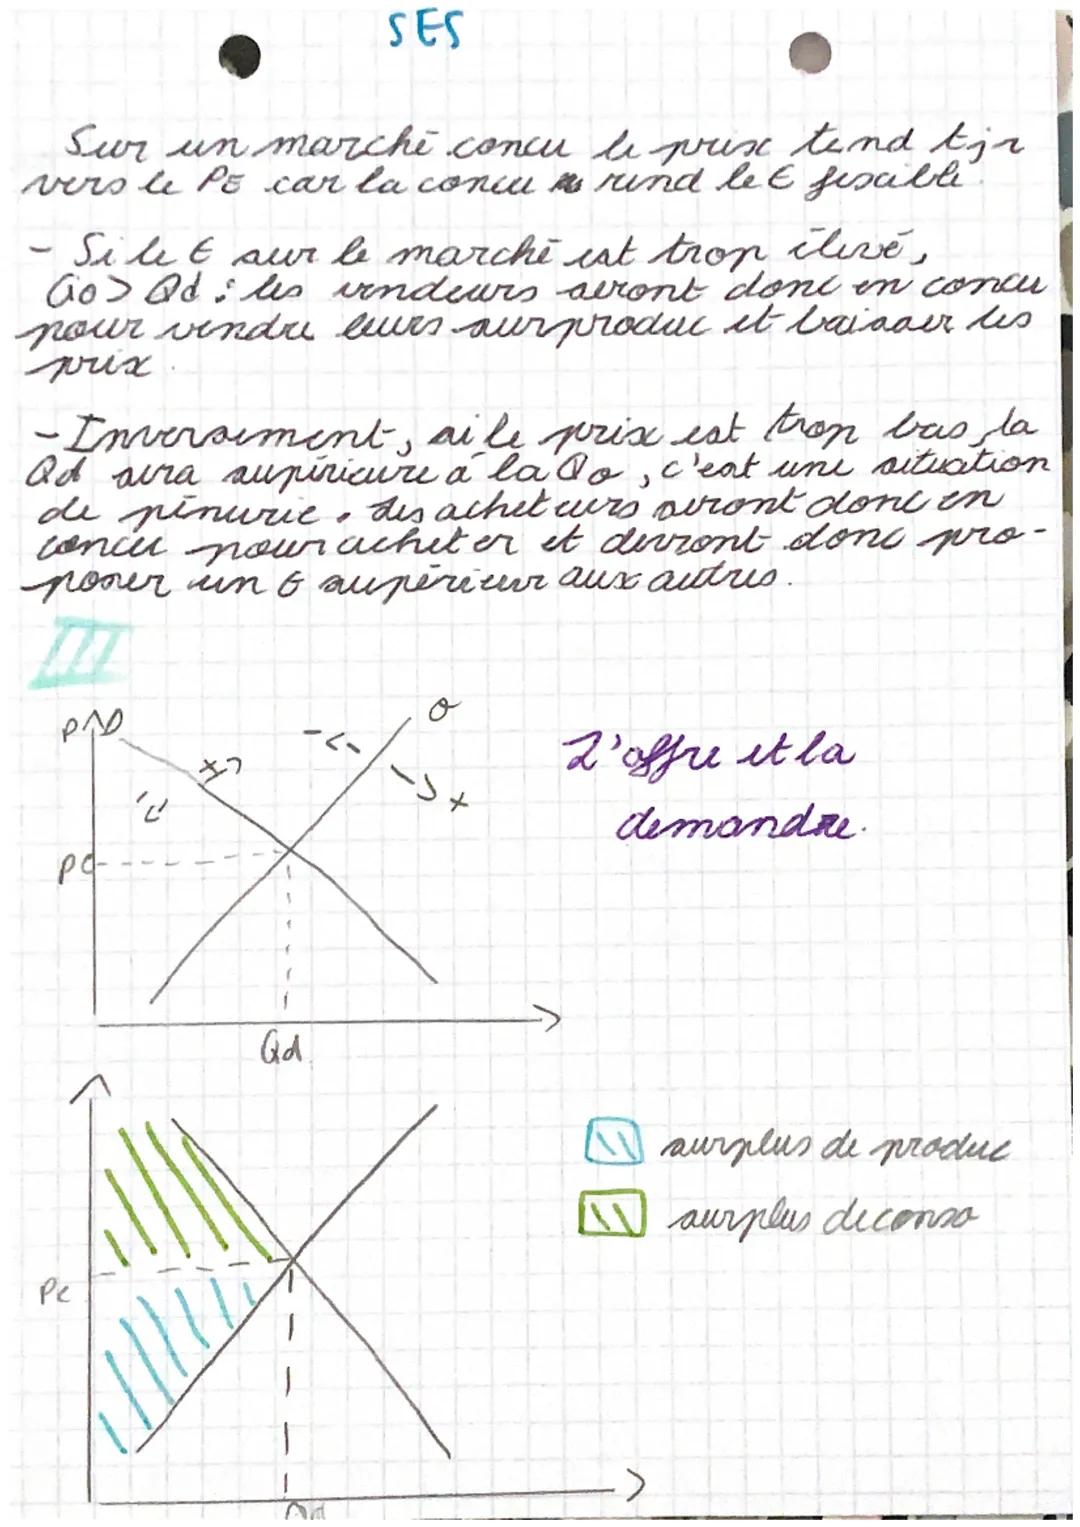 SES
Sur un marché concu le prix tend tjr
vers le PE car la concu rend le € fixable.
- Si le € sur le marché est trop élevé,
Qo > Qd : les vendeurs seront donc en concu
pour vendre leurs surproduc et baisser les
prix.
- Inversement, si le prix est trop bas, la
Qd sera supérieure à la Qo, c'est une situation
de pénurie. Les acheteurs seront donc en
concu pour acheter et devront donc pro-
poser un € supérieur aux autres.
III
P D O
- +
- +
L'offre et la
demande.
Pe
Qd
surplus de produc
surplus de conso
Pe
Qd